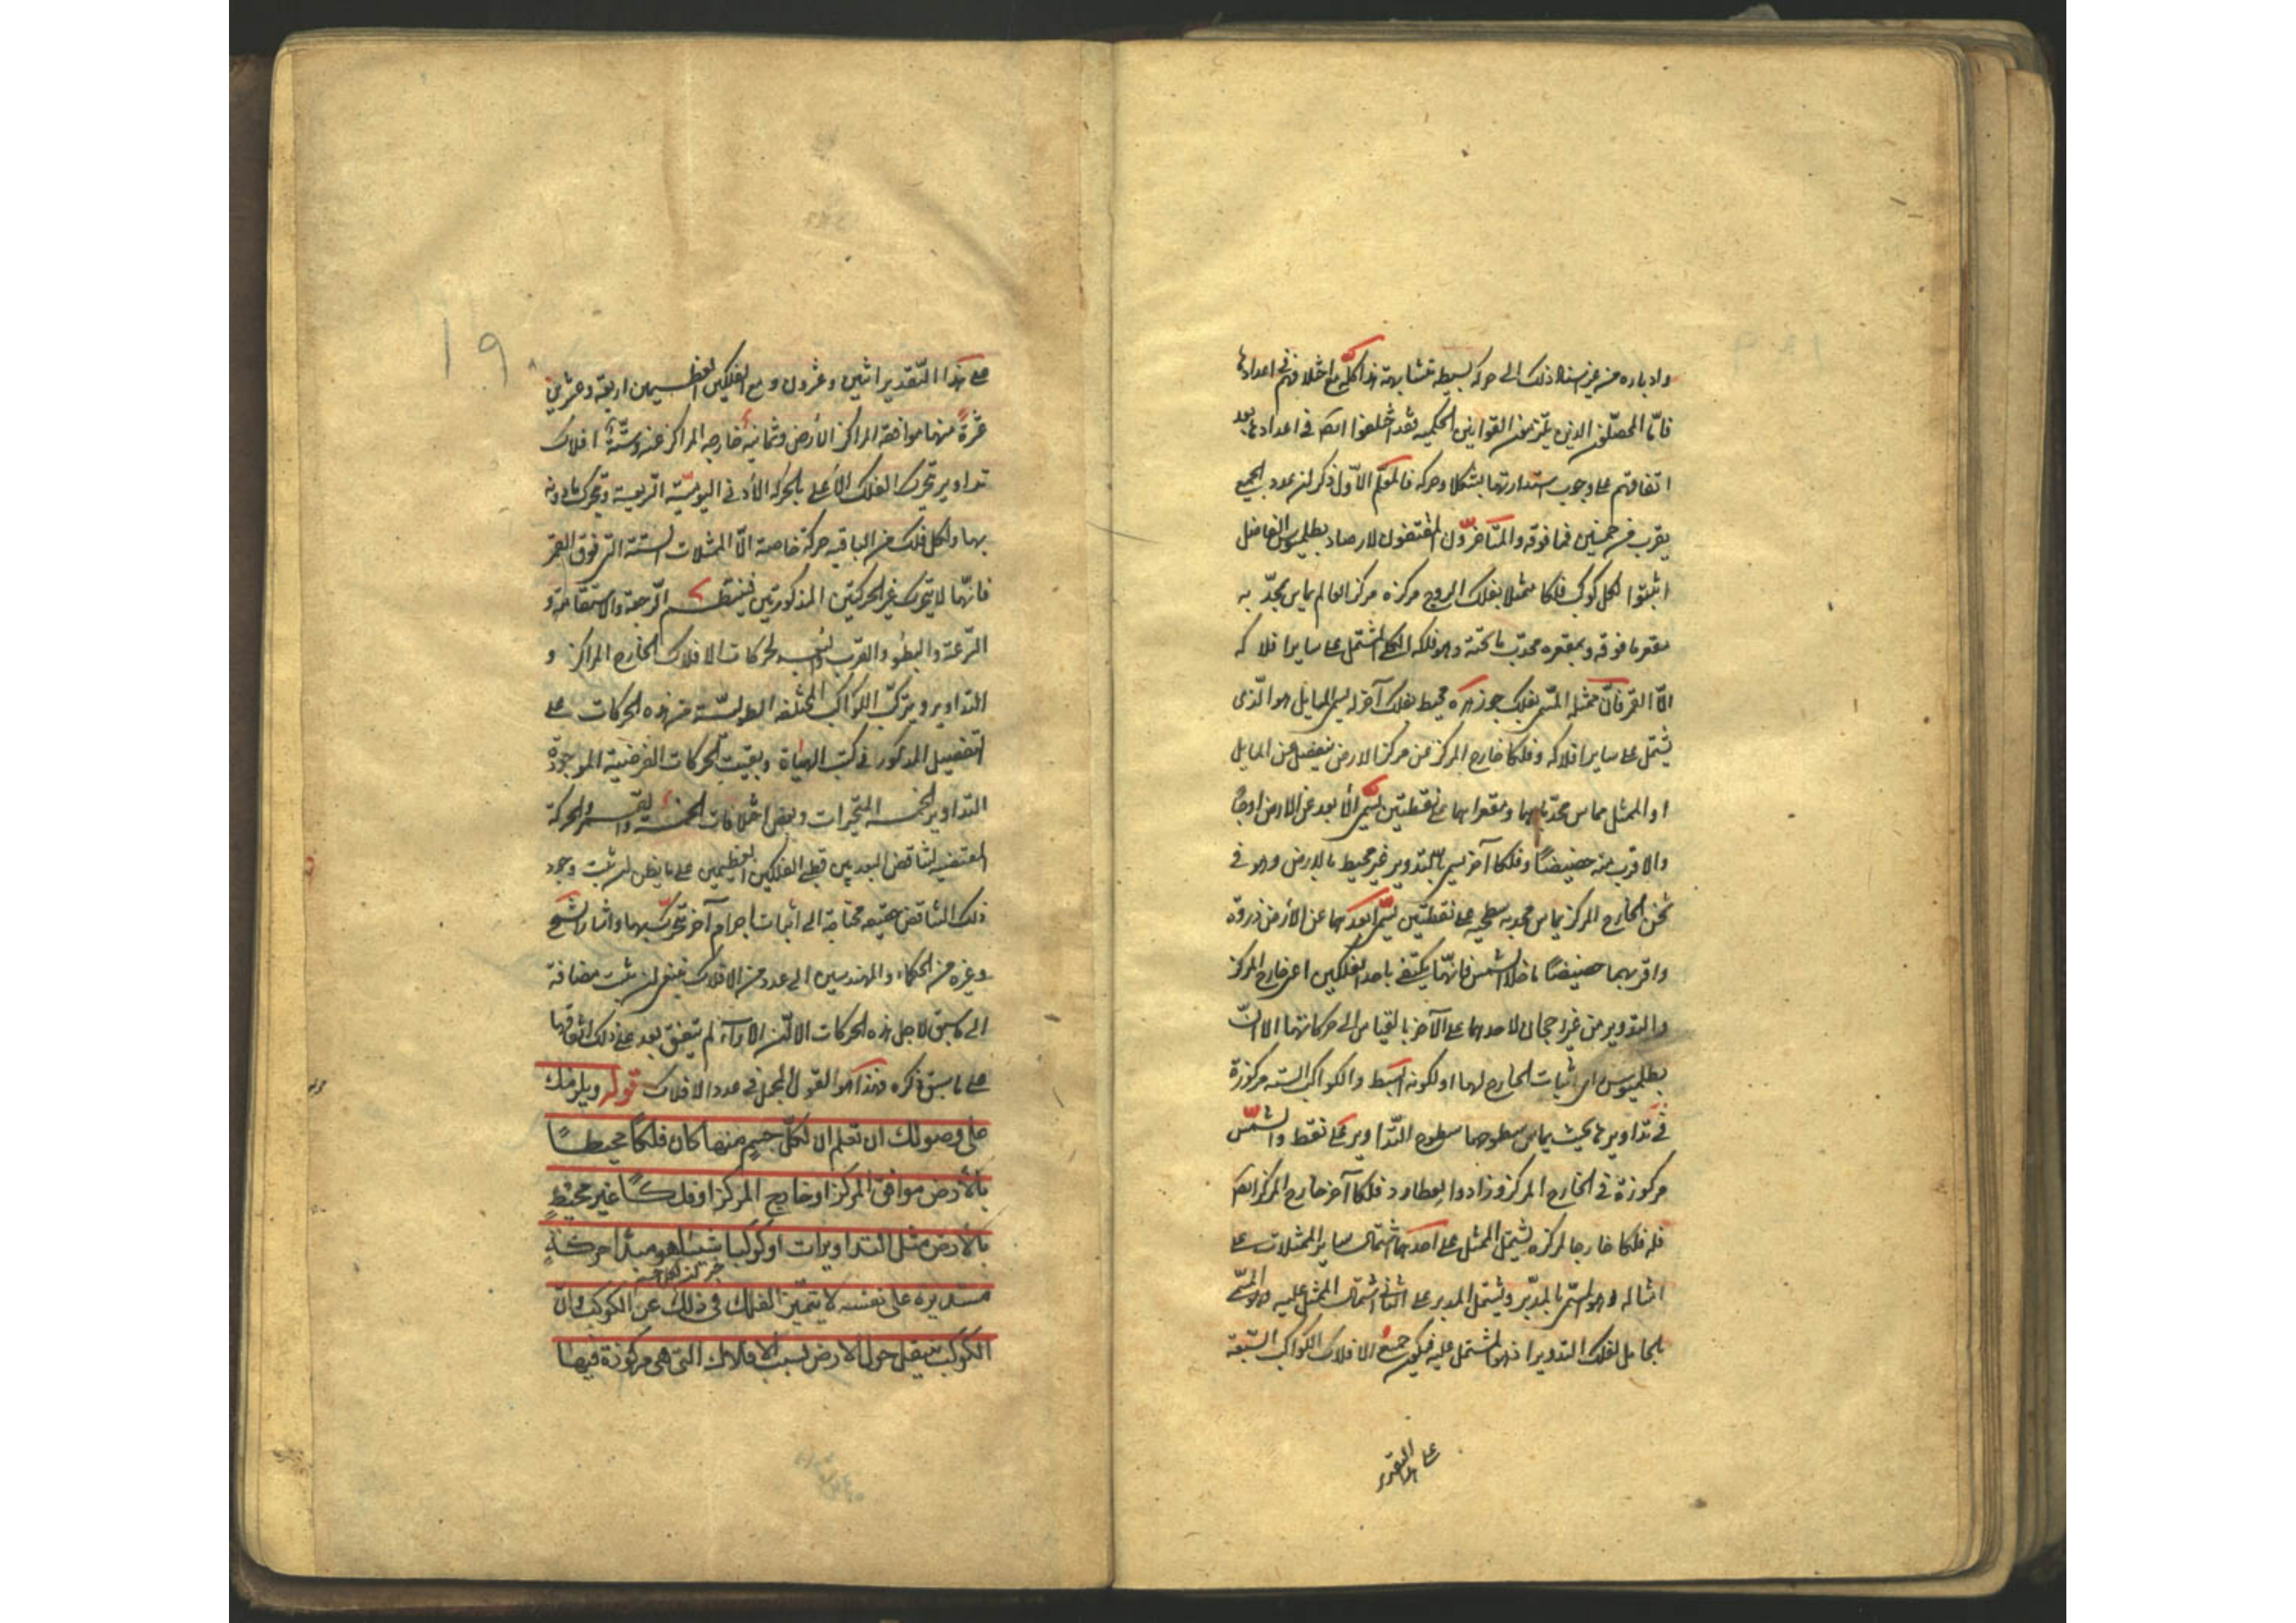 وادباره من غير اسناد ذلك الى حركة بسيطة متشابهة هذا كله مع اختلافهم في اعدادها
فامّا المحصّلون الذين يلتزمون القوانين الحكمية فقد اختلفوا ايضا في اعدادها بعد
اتفاقهم على وجوب استدارتها شكلا وحركة فالمعلّم الاوّل ذكر ان عدد الجميع
يقرب من خمسين فما فوقه والمتأخّرون المقتفون لارصاد بطلميوس الفاضل
اثبتوا لكل كوكب فلكا ممثلا بفلك البروج مركزه مركز العالم يماس بمحدّبه
مقعر ما فوقه وبمقعره محدّب ما تحته وهو فلكه الكلي المشتمل على ساير افلاكه
الّا القمر فانّ ممثله المسمّى بفلك جوزهره محيط بفلك آخر له يسمى المايل هو الّذى
يشتمل على ساير افلاكه وفلكا خارج المركز عن مركز الارض ينفصل عن المايل
او الممثل يماس محدّباهما ومقعراهما على نقطتين يسمى الأبعد عن الارض اوجًا
والاقرب منه حضيضًا وفلكا آخر يسمى بالتدوير غير محيط بالارض وهو فى
ثخن الخارج المركز يماس محدبه سطحيه على نقطتين يسمّى ابعدهما عن الأرض ذروة
واقربهما حضيضًا ما خلا الشمس فانّها يكتفى باحد الفلكين اعنى خارج المركز
والتدوير من غير رجحان لاحدهما على الآخر بالقياس الى حركاتها الا انّ
بطلميوس اثبات الخارج لها اولى لكونه ابسط والكواكب الستة مركوزة
فى تداويرها بحيث يماس سطوحها سطوح التّداوير على نقط والشّمس
مركوزة فى الخارج المركز وزادوا لعطارد فلكا آخر خارج المركز ايضا
فله فلكا خارجا لمركزه يشتمل الممثل على احدهما اشتمال ساير الممثلات على
امثاله وهو المسمّى بالمدير ويشتمل المدير على الثانى اشتمال الممثل عليه وهو المسمّى
بالحامل لفلك التدوير اذ هو المشتمل عليه فيكون جميع الافلاك الكواكب السّبعة
على هذا التقدير
١٩
على هذا التّقدير اثنين وعشرون و مع الفلكين العظيمين اربعة وعشرين
عشرة منها موافقة المراكز الأرض وثمانية خارجة المراكز عنه وستّة افلاك
تداوير تحرك الفلك الأعلى بالحركة الأولى اليوميّة السريعة وتحرك ما دونه
بها ولكل فلك من الباقية حركة خاصة الّا الممثلات الستة التى فوق القمر
فانّها لا يتحرك غير الحركتين المذكورتين فينتظم الرّجعة والاستقامة و
السّرعة والبطؤ والقرب والبعد بحركات الافلاك الخارج المراكز و
التداوير ويتركّب الكواكب المختلفة الطولية من هذه الحركات على
التفصيل المذكور فى كتب الهيأة وبقيت الحركات العرضية الموجودة
التداوير الخمسة المتحيرات وبعض اختلافات الخمسة والقمر والحركة
المقتضية لتناقض البعد بين قطبى الفلكين العظيمين على ما يظن ان ثبت وجود
ذلك التناقض حقيقة محتاجة الى اثبات اجرام آخر تتحرك بها واشار الشيخ
وغيره من الحكماء والمهندسين الى عدد من الافلاك ينبغى ان يثبت مضافة
الى ما سبق لاجل هذه الحركات الا انّ الآراء لم يتفق بعد على ذلك اتفاقها
على ما سبق ذكره فهذا هو القول المجمل فى عدد الافلاك قوله ويلزمك
على اصولك ان تعلم ان لكلّ جسم منها كان فلكا محيطًا
بالأرض موافق المركز او خارج المركز او فلكًا غير محيط
بالأرض مثل التداويرات او كوكبا شيئا هو مبدأ حركةٍ
مستديرة على نفسه لا يتميز الفلك فى ذلك عن الكوكب وانّ
الكوكب ينتقل حول الارض بسبب الافلاك التى هى مركوزة فيها